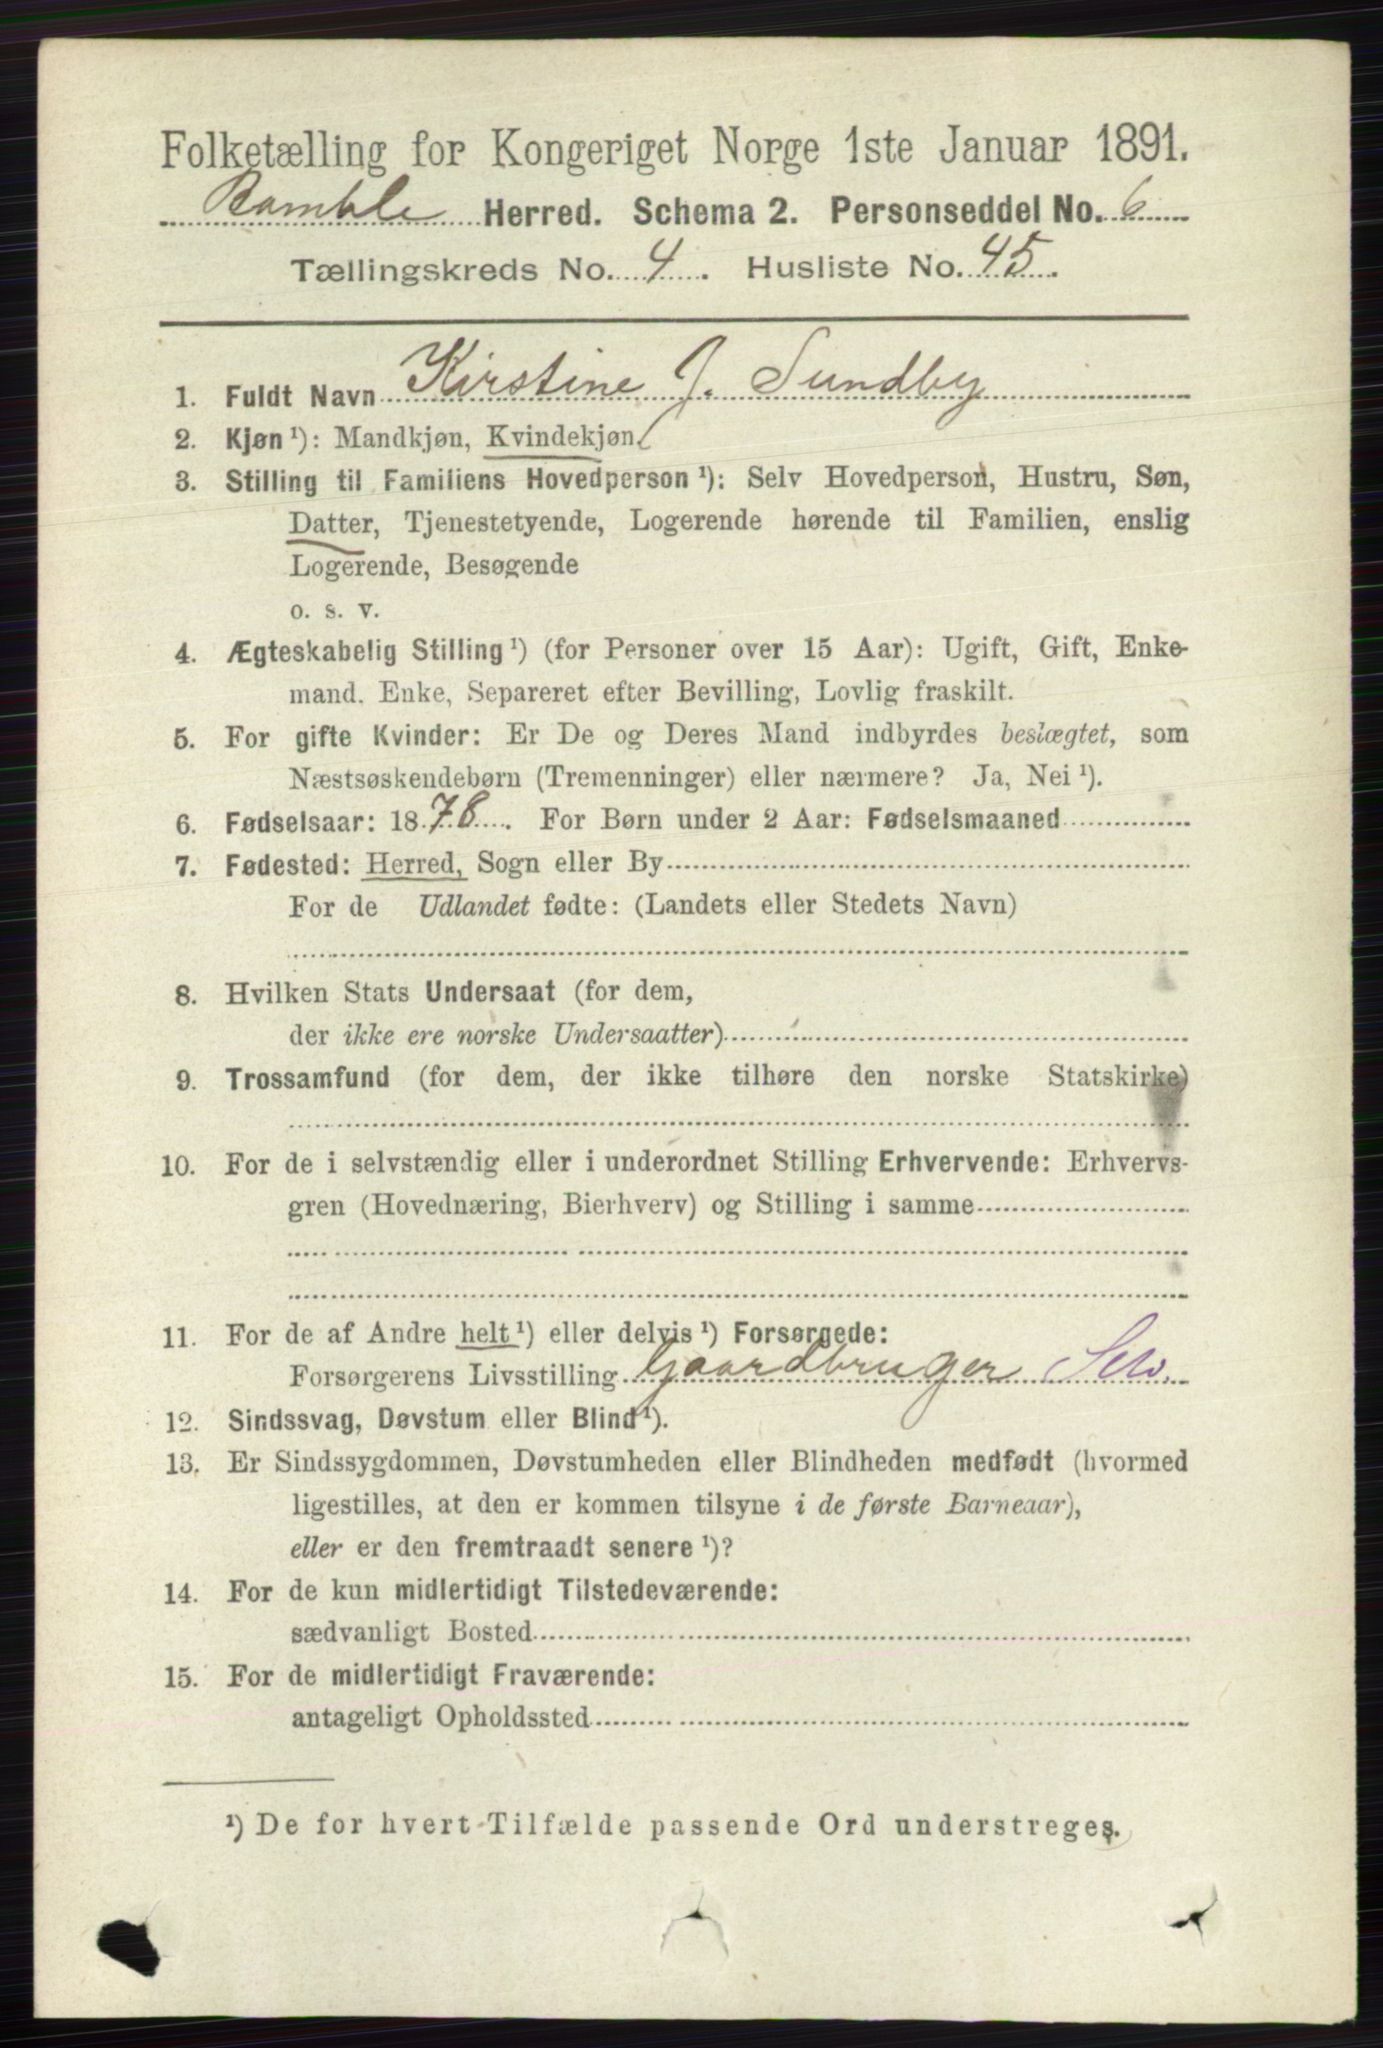 Folketælling for Kongeriget Norge 1ste Januar 1891.
Bamble Herred. Schema 2. Personseddel No. 6
Tællingskreds No. 4. Husliste No. 45.
1. Fuldt Navn Kirstine J. Sundby
2. Kjøn¹): Mandkjøn, Kvindekjøn.
3. Stilling til Familiens Hovedperson¹): Selv Hovedperson, Hustru, Søn,
Datter, Tjenestetyende, Logerende hørende til Familien, enslig
Logerende, Besøgende
o. s. v.
4. Ægteskabelig Stilling¹) (for Personer over 15 Aar): Ugift, Gift, Enke-
mand. Enke, Separeret efter Bevilling, Lovlig fraskilt.
5. For gifte Kvinder: Er De og Deres Mand indbyrdes beslægtet, som
Næstsøskendebørn (Tremenninger) eller nærmere? Ja, Nei¹).
6. Fødselsaar: 1878. For Børn under 2 Aar: Fødselsmaaned
7. Fødested: Herred, Sogn eller By
For de Udlandet fødte: (Landets eller Stedets Navn)
8. Hvilken Stats Undersaat (for dem,
der ikke ere norske Undersaatter)
9. Trossamfund (for dem, der ikke tilhøre den norske Statskirke)
10. For de i selvstændig eller i underordnet Stilling Erhvervende: Erhvervs-
gren (Hovednæring, Bierhverv) og Stilling i samme
11. For de af Andre helt¹) eller delvis¹) Forsørgede:
Forsørgerens Livsstilling Gaardbruger Selv.
12. Sindssvag, Døvstum eller Blind¹).
13. Er Sindssygdommen, Døvstumheden eller Blindheden medfødt (hvormed
ligestilles, at den er kommen tilsyne i de første Barneaar),
eller er den fremtraadt senere¹)?
14. For de kun midlertidigt Tilstedeværende:
sædvanligt Bosted
15. For de midlertidigt Fraværende:
antageligt Opholdssted
¹) De for hvert Tilfælde passende Ord understreges.